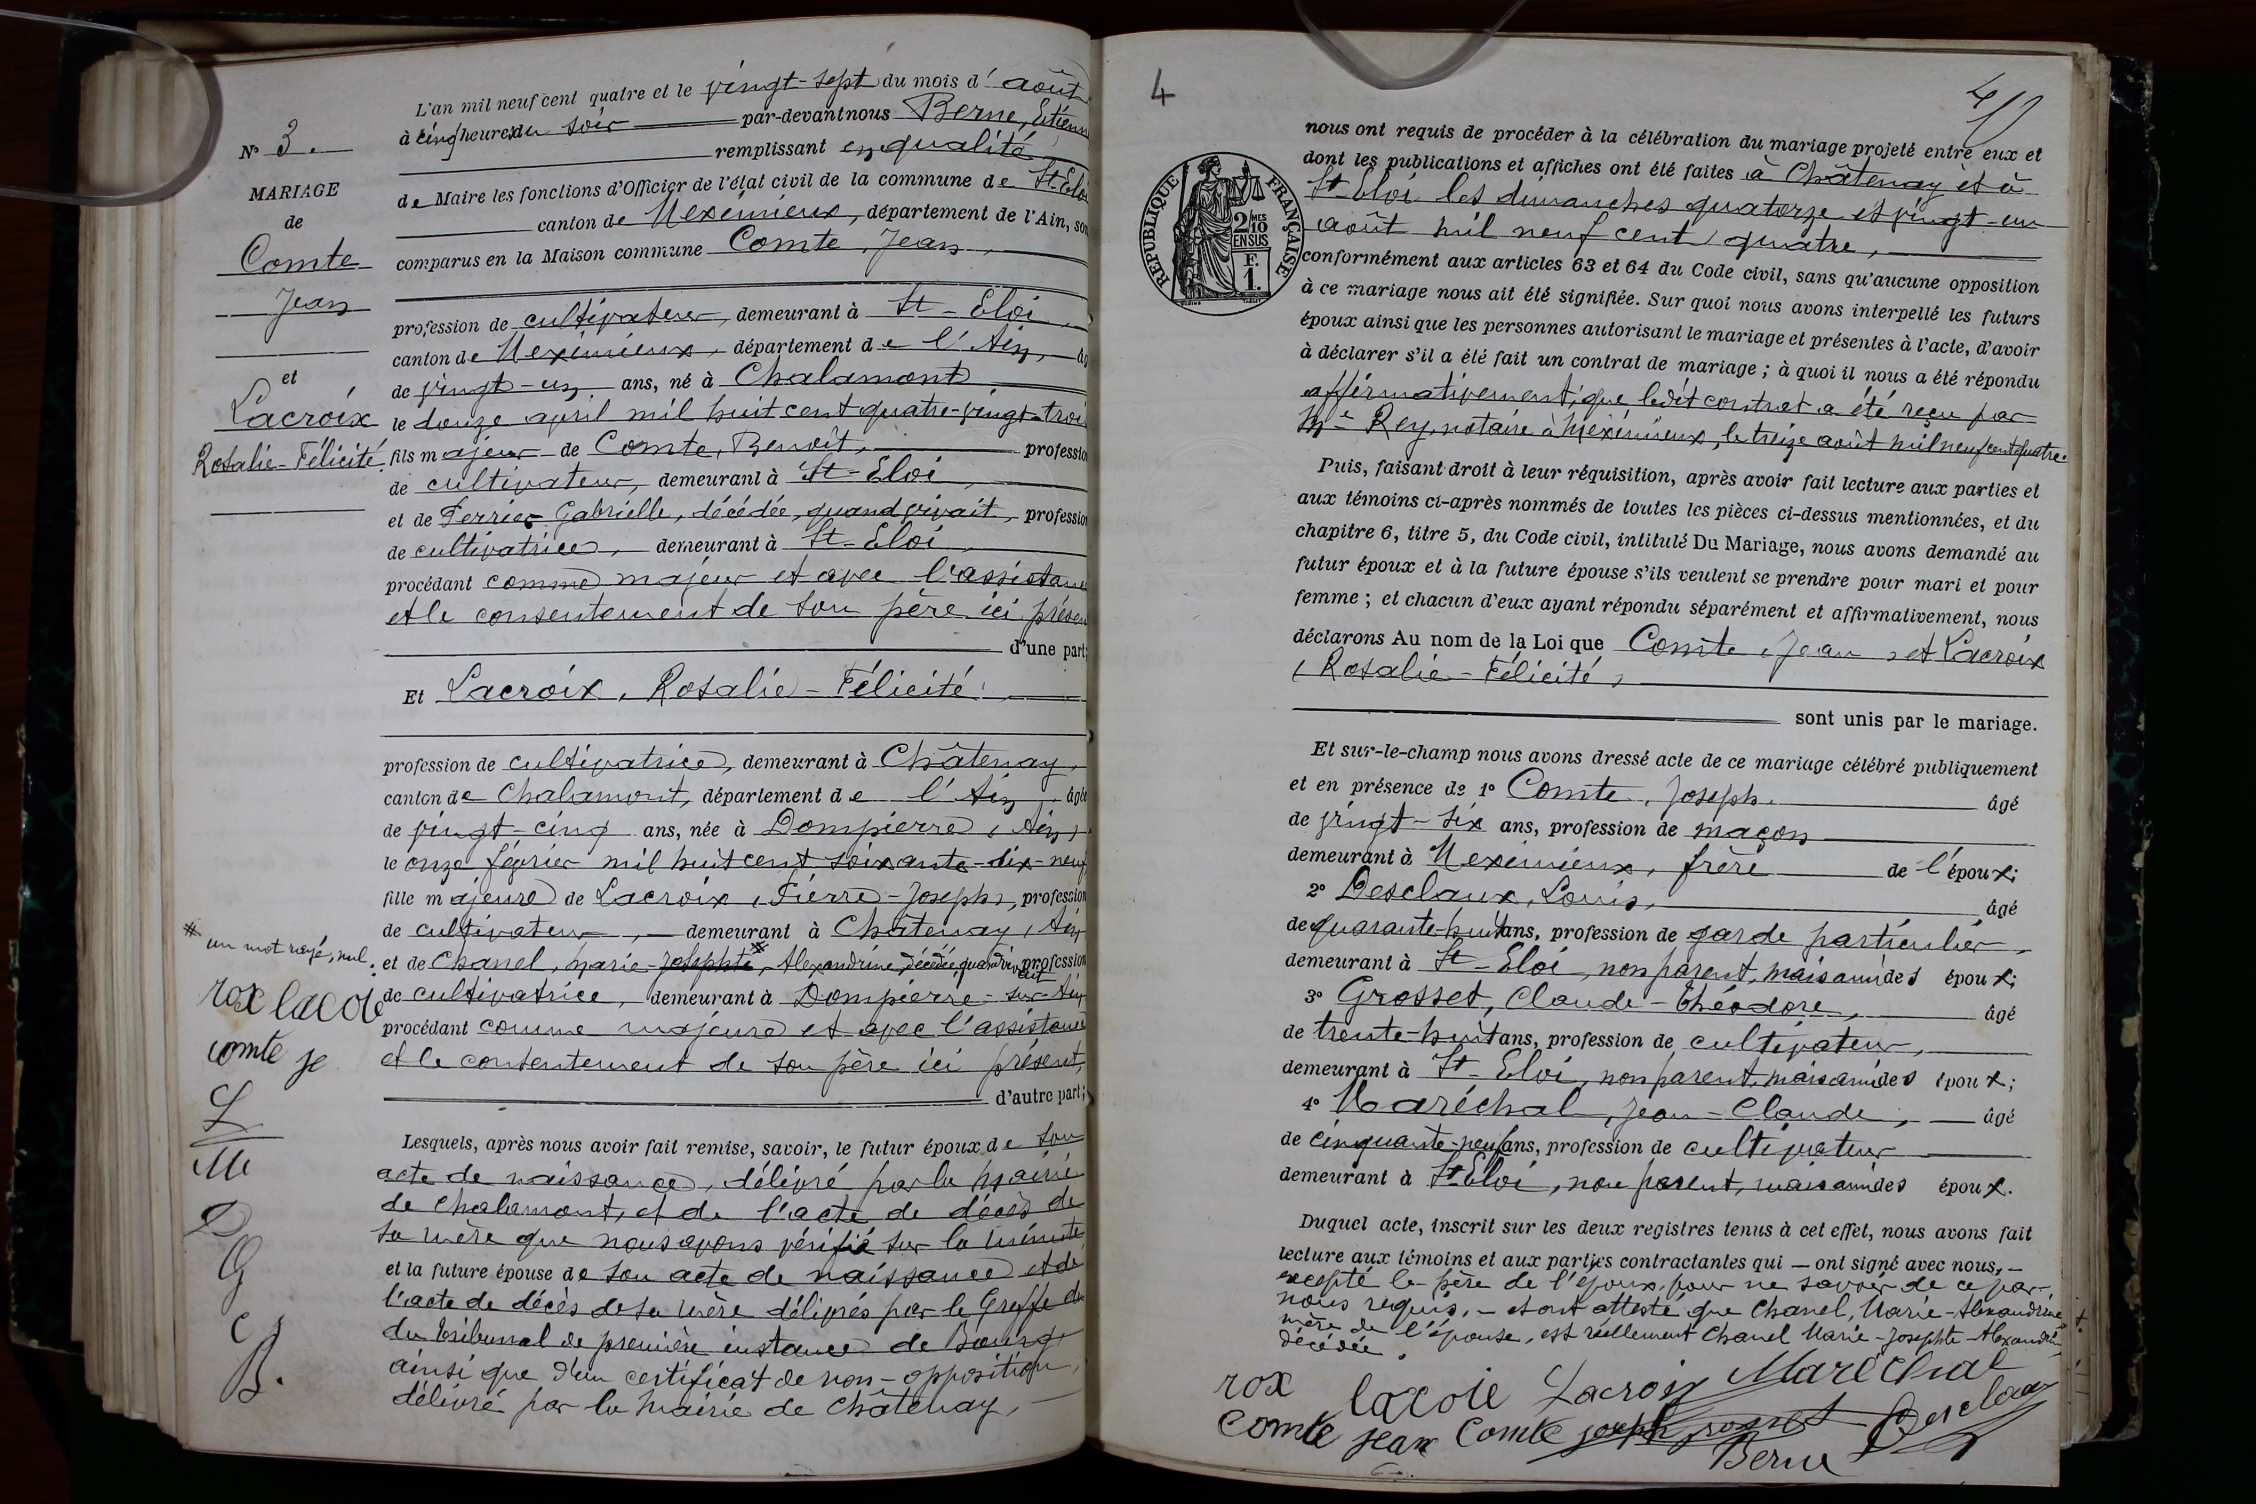 L'an mil neuf cent quatre et le vingt-sept du mois d'août
à cinq heures du soir par-devant nous Berne, Etienne
remplissant en qualité
de Maire les fonctions d'Officier de l'état civil de la commune de St-Eloi
canton de Meximieux, département de l'Ain, son
comparus en la Maison commune Comte, Jean,
profession de cultivateur, demeurant à St-Eloi,
canton de Meximieux, département de l'Ain, âg
de vingt-un ans, né à Chalamont
le douze avril mil huit cent quatre-vingt-trois
fils majeur de Comte, Benoît, profession
de cultivateur, demeurant à St-Eloi,
et de Perrier Gabrielle, décédée, quand vivait, profession
de cultivatrice, demeurant à St-Eloi,
procédant comme majeur et avec l'assistance
et le consentement de son père ici présent
d'une part;
Et Lacroix, Rosalie-Félicité,
profession de cultivatrice, demeurant à Châtenay,
canton de Chalamont, département de l'Ain, âgée
de vingt-cinq ans, née à Dompierre, (Ain)
le onze février mil huit cent soixante-dix-neuf
fille majeure de Lacroix, Pierre-Joseph, profession
de cultivateur, demeurant à Châtenay, Ain
et de Chanel, Marie-Josephte, Alexandrine, décédée, quand vivait profession
de cultivatrice, demeurant à Dompierre-sur-Ain
procédant comme majeure et avec l'assistance
et le consentement de son père ici présent,
d'autre part;
Lesquels, après nous avoir fait remise, savoir, le futur époux de son
acte de naissance, délivré par la Mairie
de Chalamont, et de l'acte de décès de
sa mère que nous avons vérifié sur la minute
et la future épouse de son acte de naissance et de
l'acte de décès de sa mère délivrés par le Greffe du
du tribunal de première instance de Bourg
ainsi que d'un certificat de non-opposition,
délivré par la Mairie de Châtenay,
N° 3.
MARIAGE
de
Comte
Jean
et
Lacroix
Rosalie-Félicité.
un mot rayé, nul.
rox lacoie
comte je
L
M
D
G
C j
B.
4
4
RÉPUBLIQUE FRANÇAISE
2 MES
10
EN SUS
F.
1.
nous ont requis de procéder à la célébration du mariage projeté entre eux et
dont les publications et affiches ont été faites à Châtenay et à
St-Eloi les dimanches quatorze et vingt-un
août mil neuf cent quatre,
conformément aux articles 63 et 64 du Code civil, sans qu'aucune opposition
à ce mariage nous ait été signifiée. Sur quoi nous avons interpellé les futurs
époux ainsi que les personnes autorisant le mariage et présentes à l'acte, d'avoir
à déclarer s'il a été fait un contrat de mariage; à quoi il nous a été répondu
affirmativement, que ledit contrat a été reçu par
Me Rey, notaire à Meximieux, le treize août mil neuf cent quatre.
Puis, faisant droit à leur réquisition, après avoir fait lecture aux parties et
aux témoins ci-après nommés de toutes les pièces ci-dessus mentionnées, et du
chapitre 6, titre 5, du Code civil, intitulé Du Mariage, nous avons demandé au
futur époux et à la future épouse s'ils veulent se prendre pour mari et pour
femme; et chacun d'eux ayant répondu séparément et affirmativement, nous
déclarons Au nom de la Loi que Comte, Jean, et Lacroix
Rosalie-Félicité,
sont unis par le mariage.
Et sur-le-champ nous avons dressé acte de ce mariage célébré publiquement
et en présence de 1° Comte, Joseph, âgé
de vingt-six ans, profession de maçon
demeurant à Meximieux, frère de l'époux;
2° Desclaux, Louis, âgé
de quarante-huit ans, profession de garde particulier,
demeurant à St-Eloi, non parent, mais ami des époux;
3° Grosset, Claude-Théodore, âgé
de trente-huit ans, profession de cultivateur,
demeurant à St-Eloi, non parent, mais ami des époux;
4° Maréchal, Jean-Claude, âgé
de cinquante-neuf ans, profession de cultivateur
demeurant à St-Eloi, non parent, mais ami des époux.
Duquel acte, inscrit sur les deux registres tenus à cet effet, nous avons fait
lecture aux témoins et aux parties contractantes qui — ont signé avec nous, —
excepté le père de l'époux, pour ne savoir de ce par
nous requis, — et ont attesté que Chanel, Marie-Alexandrine
mère de l'épouse, est réellement Chanel Marie-Josephte-Alexandrine
décédée.
rox lacoie Lacroix Maréchal
Comte jean Comte joseph Desclaux
Berne